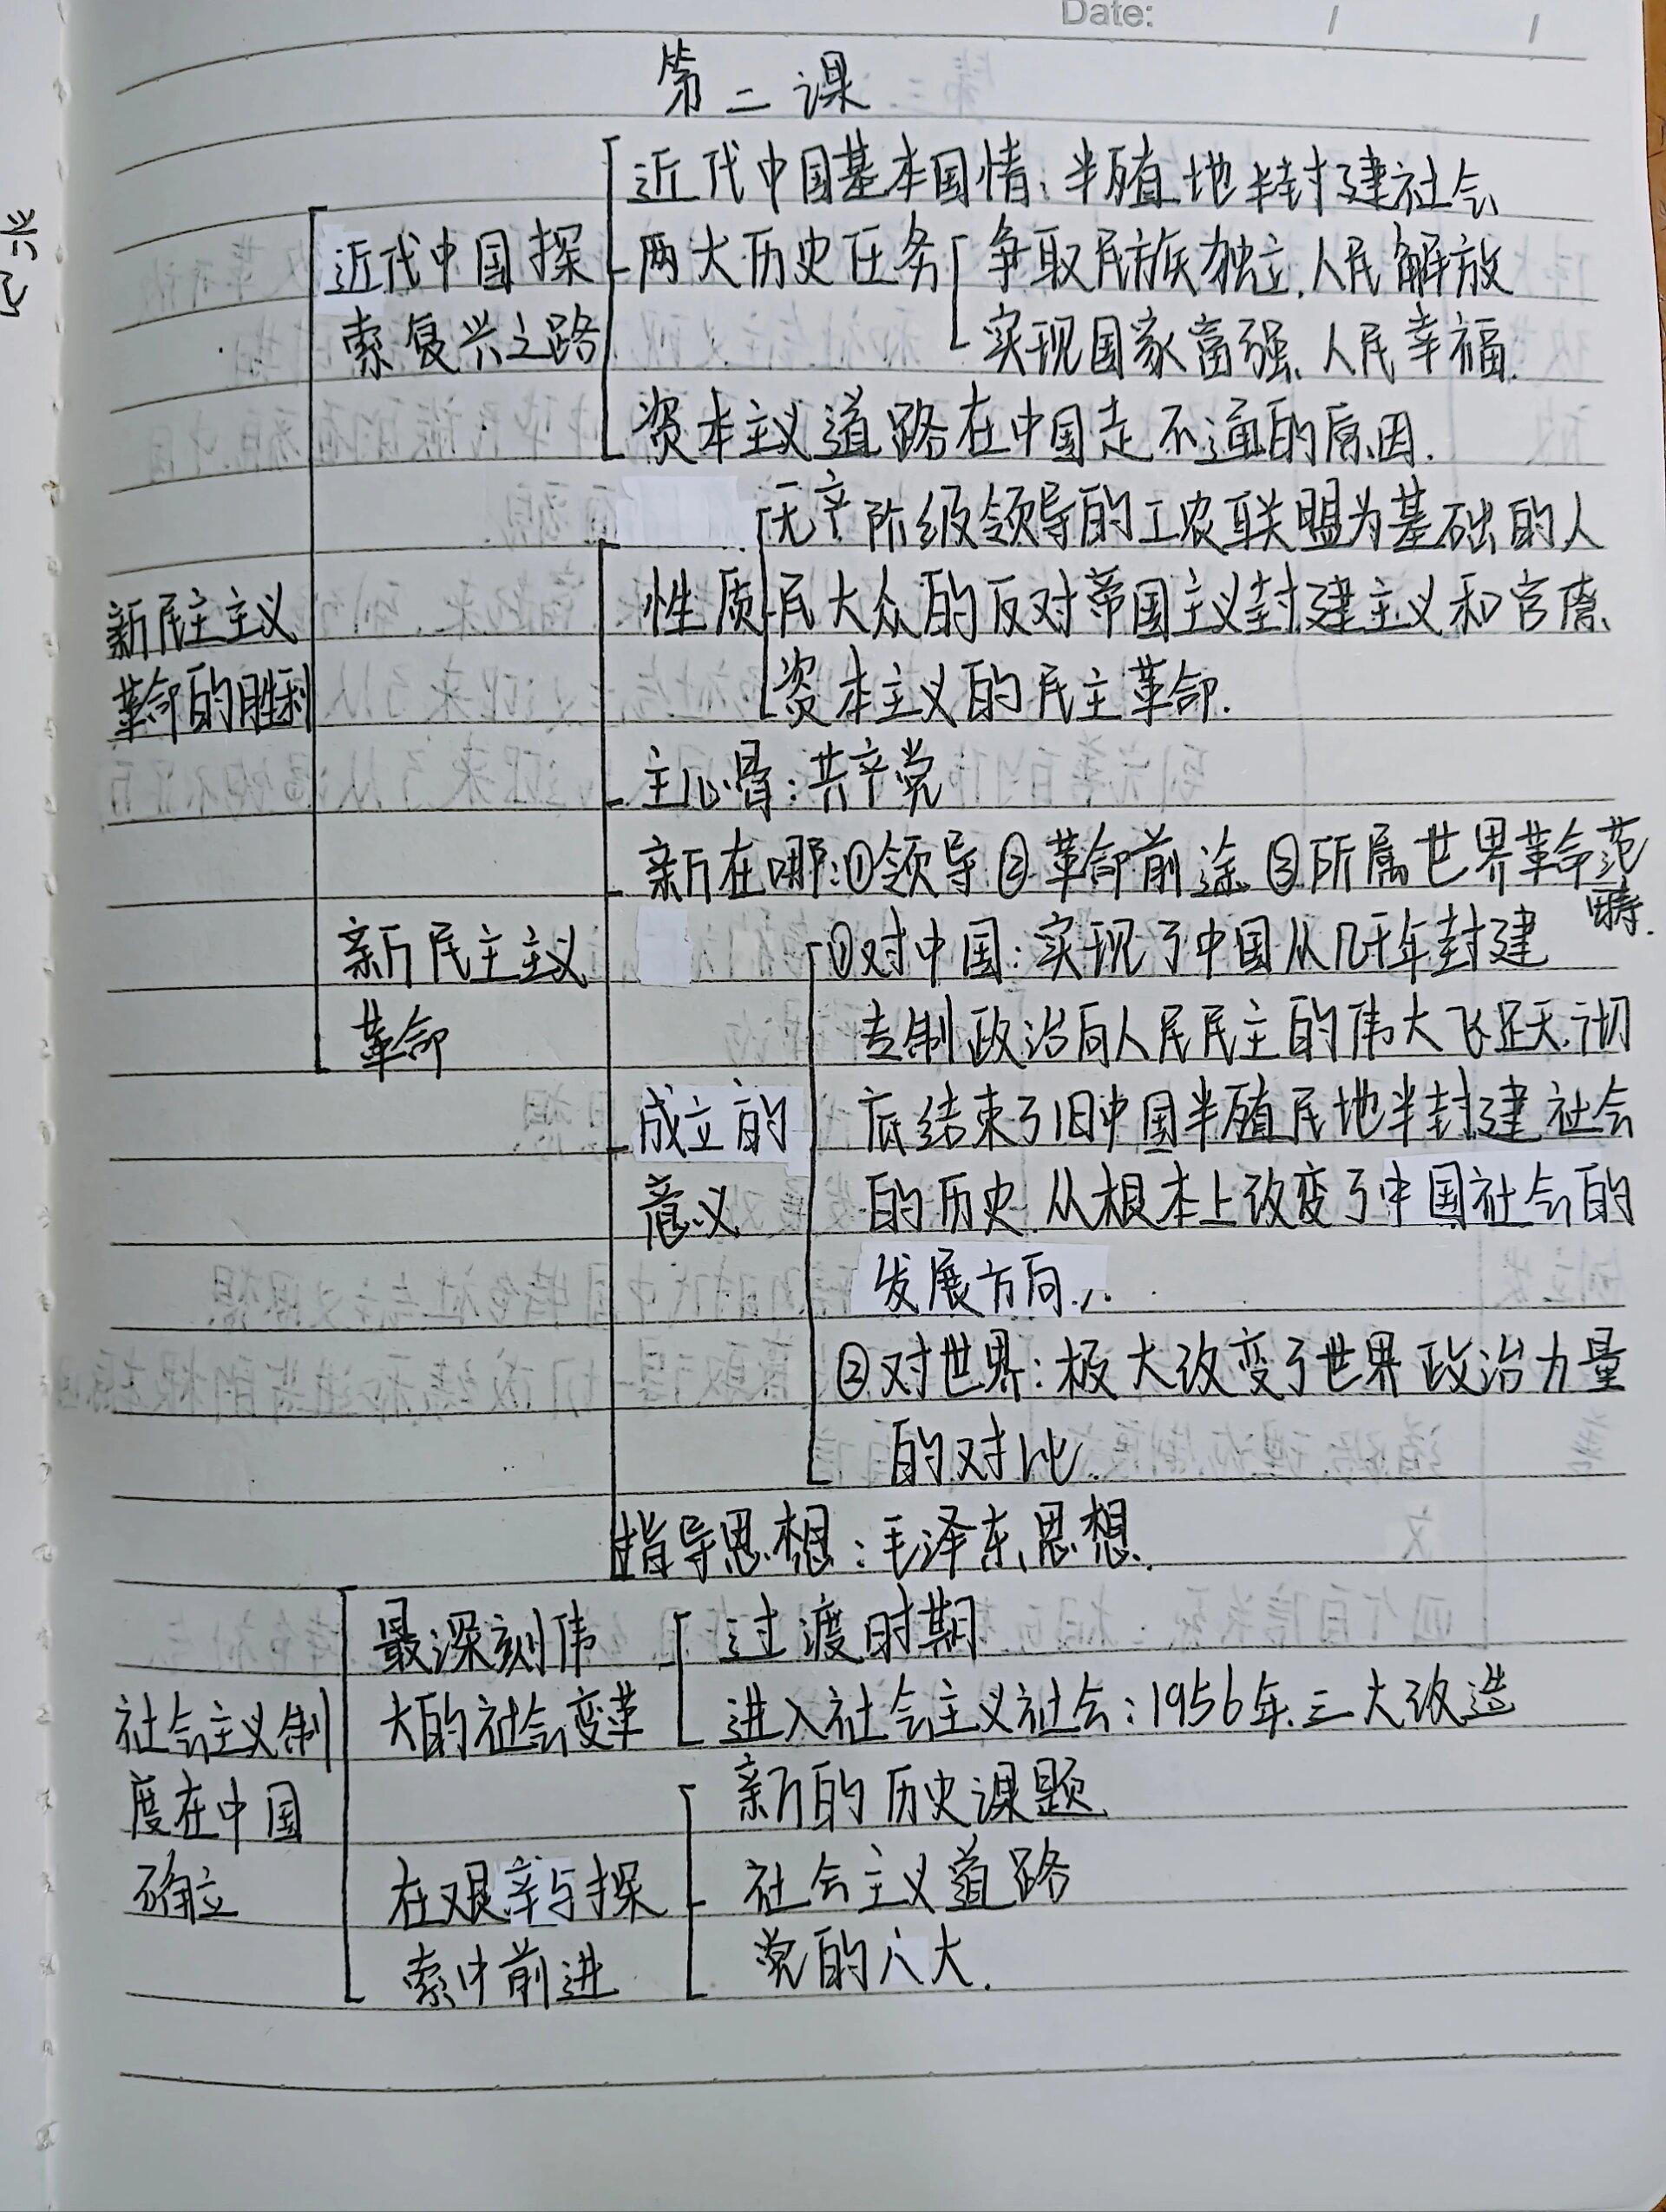 Date: / /
第二课
近代中国基本国情：半殖地半封建社会
近代中国探
两大历史任务
争取民族独立、人民解放
索复兴之路
实现国家富强、人民幸福.
资本主义道路在中国走不通的原因.
无产阶级领导的工农联盟为基础的人
新民主主义
性质
民大众的反对帝国主义封建主义和官僚
革命的胜利
资本主义的民主革命.
主心骨：共产党
新在哪：①领导②革命前途③所属世界革命范
畴.
新民主主义
①对中国：实现了中国从几千年封建
革命
专制政治向人民民主的伟大飞跃.彻
成立的
底结束了旧中国半殖民地半封建社会
意义
的历史.从根本上改变了中国社会的
发展方向.
②对世界：极大改变了世界政治力量
的对比.
指导思想：毛泽东思想.
最深刻伟
过渡时期
社会主义制
大的社会变革
进入社会主义社会：1956年.三大改造
度在中国
新的历史课题
确立
在艰辛与探
社会主义道路
索中前进
党的八大.